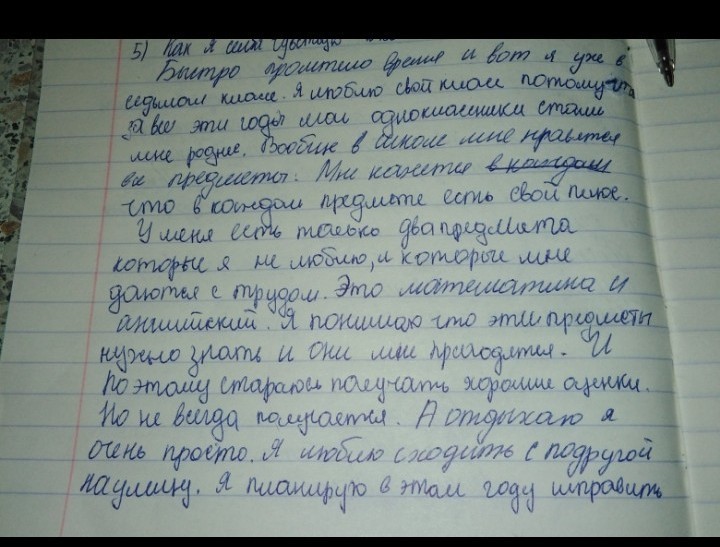 5) Как я себя чувствую
Быстро пролетело время и вот я уже в
седьмом класе. Я люблю свой класс потому что
за все эти годы мои одноклассники стали
мне родные. Вообще в школе мне нравятся
все предметы. Мне кажется в каждом
что в каждом предмете есть свой плюс.
У меня есть только два предмета
которые я не люблю, и которые мне
даются с трудом. Это математика и
английский. Я понимаю что эти предметы
нужно знать и они мне пригодятся. И
поэтому стараюсь получать хорошие оценки.
Но не всегда получается. А отдыхаю я
очень просто. Я люблю сходить с подругой
на улицу. Я планирую в этом году исправить